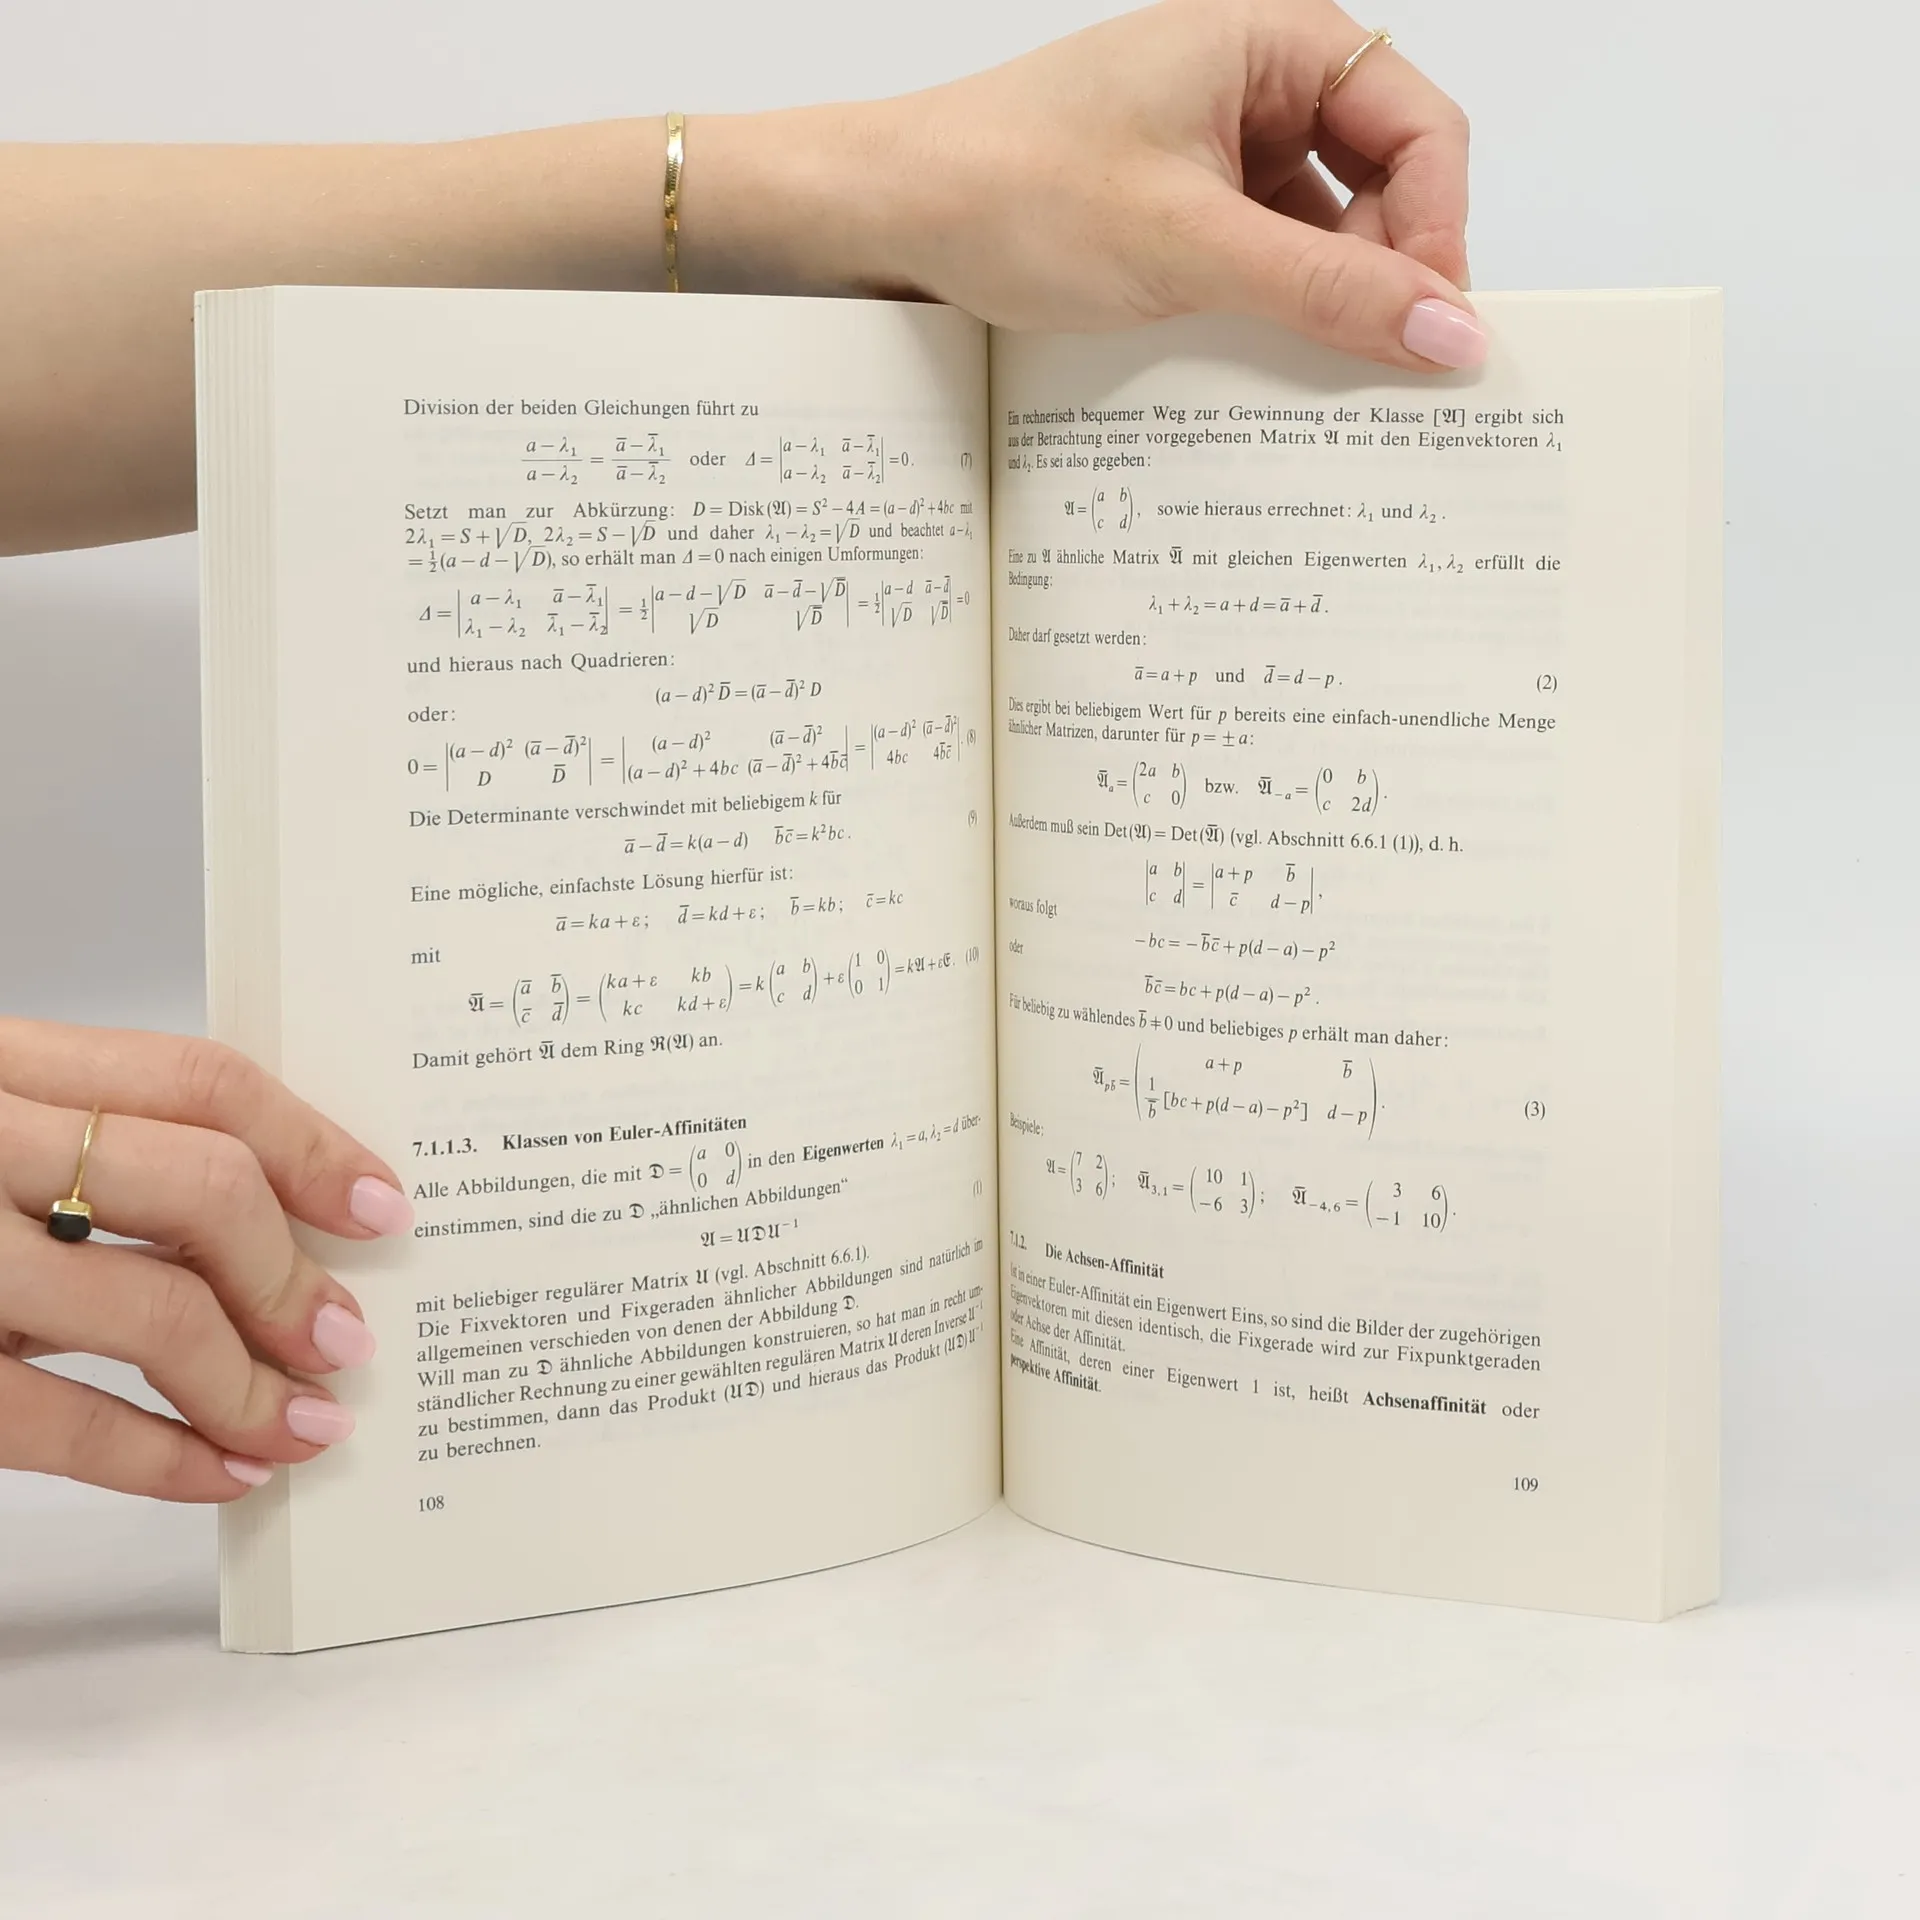 Division der beiden Gleichungen führt zu
(a − λ₁)/(a − λ₂) = (a̅ − λ̅₁)/(a̅ − λ̅₂) oder Δ = |a − λ₁ a̅ − λ̅₁; a − λ₂ a̅ − λ̅₂| = 0. (7)
Setzt man zur Abkürzung: D = Disk(𝔄) = S² − 4A = (a − d)² + 4bc mit
2λ₁ = S + √D, 2λ₂ = S − √D und daher λ₁ − λ₂ = √D und beachtet a − λ₁
= ½(a − d − √D), so erhält man Δ = 0 nach einigen Umformungen:
Δ = |a − λ₁ a̅ − λ̅₁; λ₁ − λ₂ λ̅₁ − λ̅₂| = ½|a − d − √D a̅ − d̅ − √D̅; √D √D̅| = ½|a − d a̅ − d̅; √D √D̅| = 0
und hieraus nach Quadrieren:
(a − d)² D̅ = (a̅ − d̅)² D
oder:
0 = |(a − d)² (a̅ − d̅)²; D D̅| = |(a − d)² (a̅ − d̅)²; (a − d)² + 4bc (a̅ − d̅)² + 4b̅c̅| = |(a − d)² (a̅ − d̅)²; 4bc 4b̅c̅|. (8)
Die Determinante verschwindet mit beliebigem k für
a̅ − d̅ = k(a − d) b̅c̅ = k²bc. (9)
Eine mögliche, einfachste Lösung hierfür ist:
a̅ = ka + ε; d̅ = kd + ε; b̅ = kb; c̅ = kc
mit
𝔄̅ = (a̅ b̅; c̅ d̅) = (ka + ε kb; kc kd + ε) = k(a b; c d) + ε(1 0; 0 1) = k𝔄 + ε𝔈. (10)
Damit gehört 𝔄̅ dem Ring ℜ(𝔄) an.
7.1.1.3. Klassen von Euler-Affinitäten
Alle Abbildungen, die mit 𝔇 = (a 0; 0 d) in den Eigenwerten λ₁ = a, λ₂ = d über-
einstimmen, sind die zu 𝔇 „ähnlichen Abbildungen“
𝔄 = 𝔘𝔇𝔘⁻¹ (1)
mit beliebiger regulärer Matrix 𝔘 (vgl. Abschnitt 6.6.1).
Die Fixvektoren und Fixgeraden ähnlicher Abbildungen sind natürlich im
allgemeinen verschieden von denen der Abbildung 𝔇.
Will man zu 𝔇 ähnliche Abbildungen konstruieren, so hat man in recht um-
ständlicher Rechnung zu einer gewählten regulären Matrix 𝔘 deren Inverse 𝔘⁻¹
zu bestimmen, dann das Produkt (𝔘𝔇) und hieraus das Produkt (𝔘𝔇)𝔘⁻¹
zu berechnen.
108
Ein rechnerisch bequemer Weg zur Gewinnung der Klasse [𝔄] ergibt sich
aus der Betrachtung einer vorgegebenen Matrix 𝔄 mit den Eigenvektoren λ₁
und λ₂. Es sei also gegeben:
𝔄 = (a b; c d), sowie hieraus errechnet: λ₁ und λ₂.
Eine zu 𝔄 ähnliche Matrix 𝔄̅ mit gleichen Eigenwerten λ₁, λ₂ erfüllt die
Bedingung:
λ₁ + λ₂ = a + d = a̅ + d̅.
Daher darf gesetzt werden:
a̅ = a + p und d̅ = d − p. (2)
Dies ergibt bei beliebigem Wert für p bereits eine einfach-unendliche Menge
ähnlicher Matrizen, darunter für p = ± a:
𝔄̅ₐ = (2a b; c 0) bzw. 𝔄̅₋ₐ = (0 b; c 2d).
Außerdem muß sein Det(𝔄) = Det(𝔄̅) (vgl. Abschnitt 6.6.1 (1)), d. h.
|a b; c d| = |a + p b̅; c̅ d − p|,
woraus folgt
− bc = − b̅c̅ + p(d − a) − p²
oder
b̅c̅ = bc + p(d − a) − p².
Für beliebig zu wählendes b̅ ≠ 0 und beliebiges p erhält man daher:
𝔄̅_pb̅ = (a + p b̅; 1/b̅ [bc + p(d − a) − p²] d − p). (3)
Beispiele:
𝔄 = (7 2; 3 6); 𝔄̅₃,₁ = (10 1; −6 3); 𝔄̅₋₄,₆ = (3 6; −1 10).
7.1.2. Die Achsen-Affinität
Ist in einer Euler-Affinität ein Eigenwert Eins, so sind die Bilder der zugehörigen
Eigenvektoren mit diesen identisch, die Fixgerade wird zur Fixpunktgeraden
oder Achse der Affinität.
Eine Affinität, deren einer Eigenwert 1 ist, heißt Achsenaffinität oder
perspektive Affinität.
109